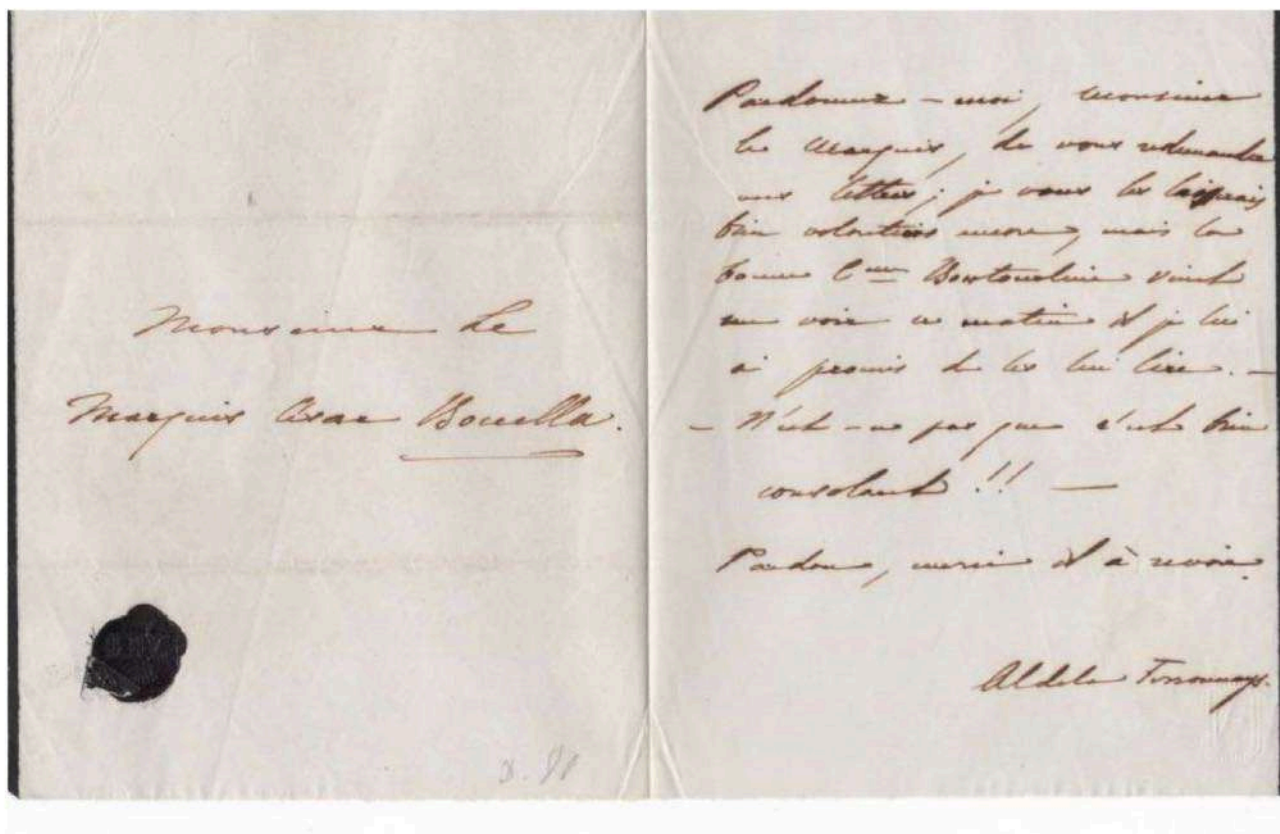 Monsieur le
Marquis César Boccella.
Pardonnez-moi, monsieur
le marquis, de vous redemander
mes lettres; je vous les laisserais
bien volontiers encore, mais la
bonne C^sse vient
me voir ce matin et je lui
ai promis de les lui lire. —
— N'est-ce pas que c'est bien
consolant!! —
Pardon, merci et à revoir.